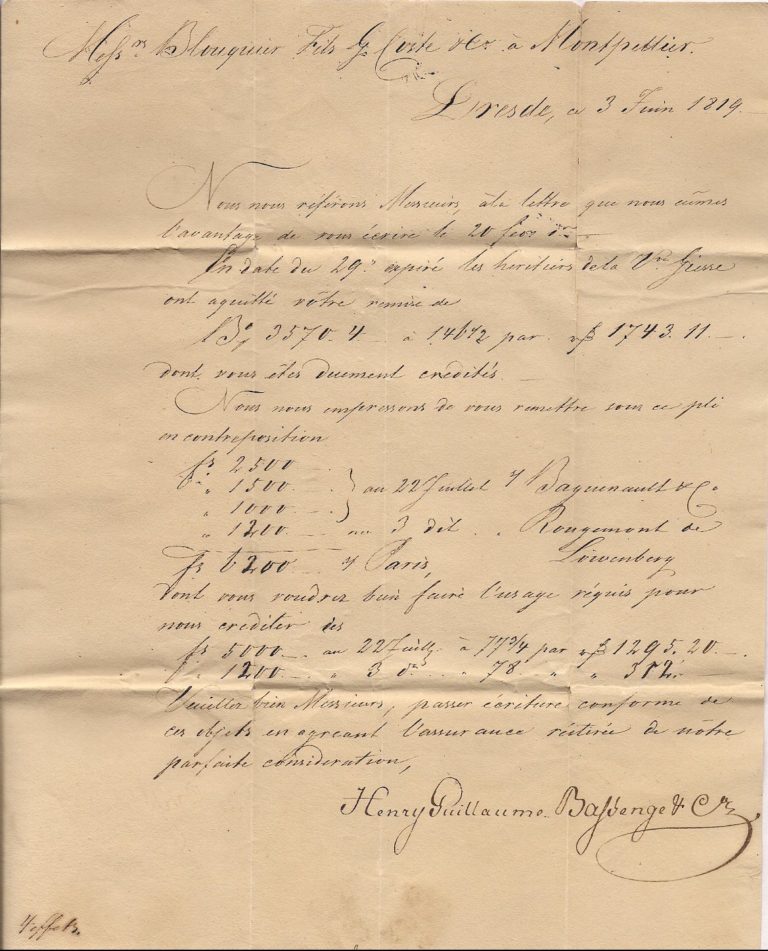 Messrs Blouquier Fils G. Coste & Ce à Montpellier.
Dresde, ce 3 Juin 1819.
Nous nous référons Messieurs, à la lettre que nous eûmes
l'avantage de vous écrire le 20
En date du 29. expiré les heritiers de la Vve Giesse
ont aquitté vôtre remise de
Bo 3570. 4 — à 146½ par 1743. 11. —.
dont vous êtes duement crédités —
Nous nous empressons de vous remettre sous ce pli
en contreposition
fs 2500 —.
" 1500 — } au 22 Juillet s/ Baguenault & Co
" 1000 —.
" 1200. — au 3 dit " Rougemont de
fs 6200 — s/ Paris, Löwenberg
dont vous voudrez bien faire l'usage réquis pour
nous créditer des
fs 5000. — au 22 Juill. à 77¾ par 1295. 20. —.
" 1200. — " 3 do " 78 " " 312. —
Veuillez bien Messieurs, passer écriture conforme de
ces objets en agréant l'assurance réiterée de nôtre
parfaite considération,
Henry Guillaume Bassenge & Ce
4 effets.